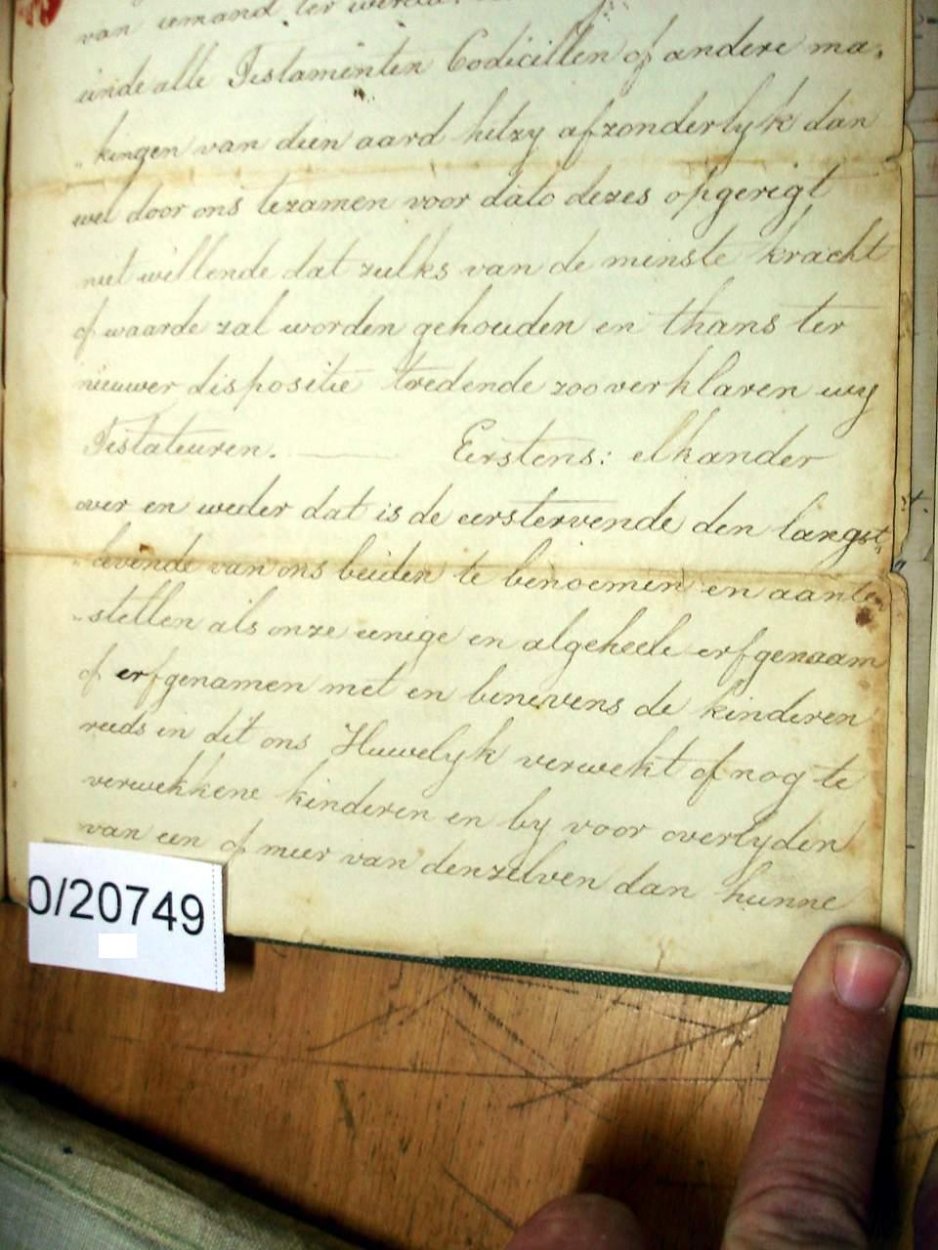 van iemand ter wereld.
einde alle Testamenten Codicillen of andere ma,
„kingen van dien aard hetzy afzonderlyk dan
wel door ons tezamen voor dato dezes opgeregt
niet willende dat zulks van de minste kracht
of waarde zal worden gehouden en thans ter
nieuwer dispositie tredende zoo verklaren wy
Testateuren. —— Eerstens: elkander
over en weder dat is de eerstervende den langst„
„levende van ons beiden te benoemen en aante„
„stellen als onze eenige en algeheele erfgenaam
of erfgenamen met en benevens de kinderen
reeds in dit ons Huwelyk verwekt of nog te
verwekkene kinderen en by voor overlyden
van een of meer van denzelven dan hunne
O/20749